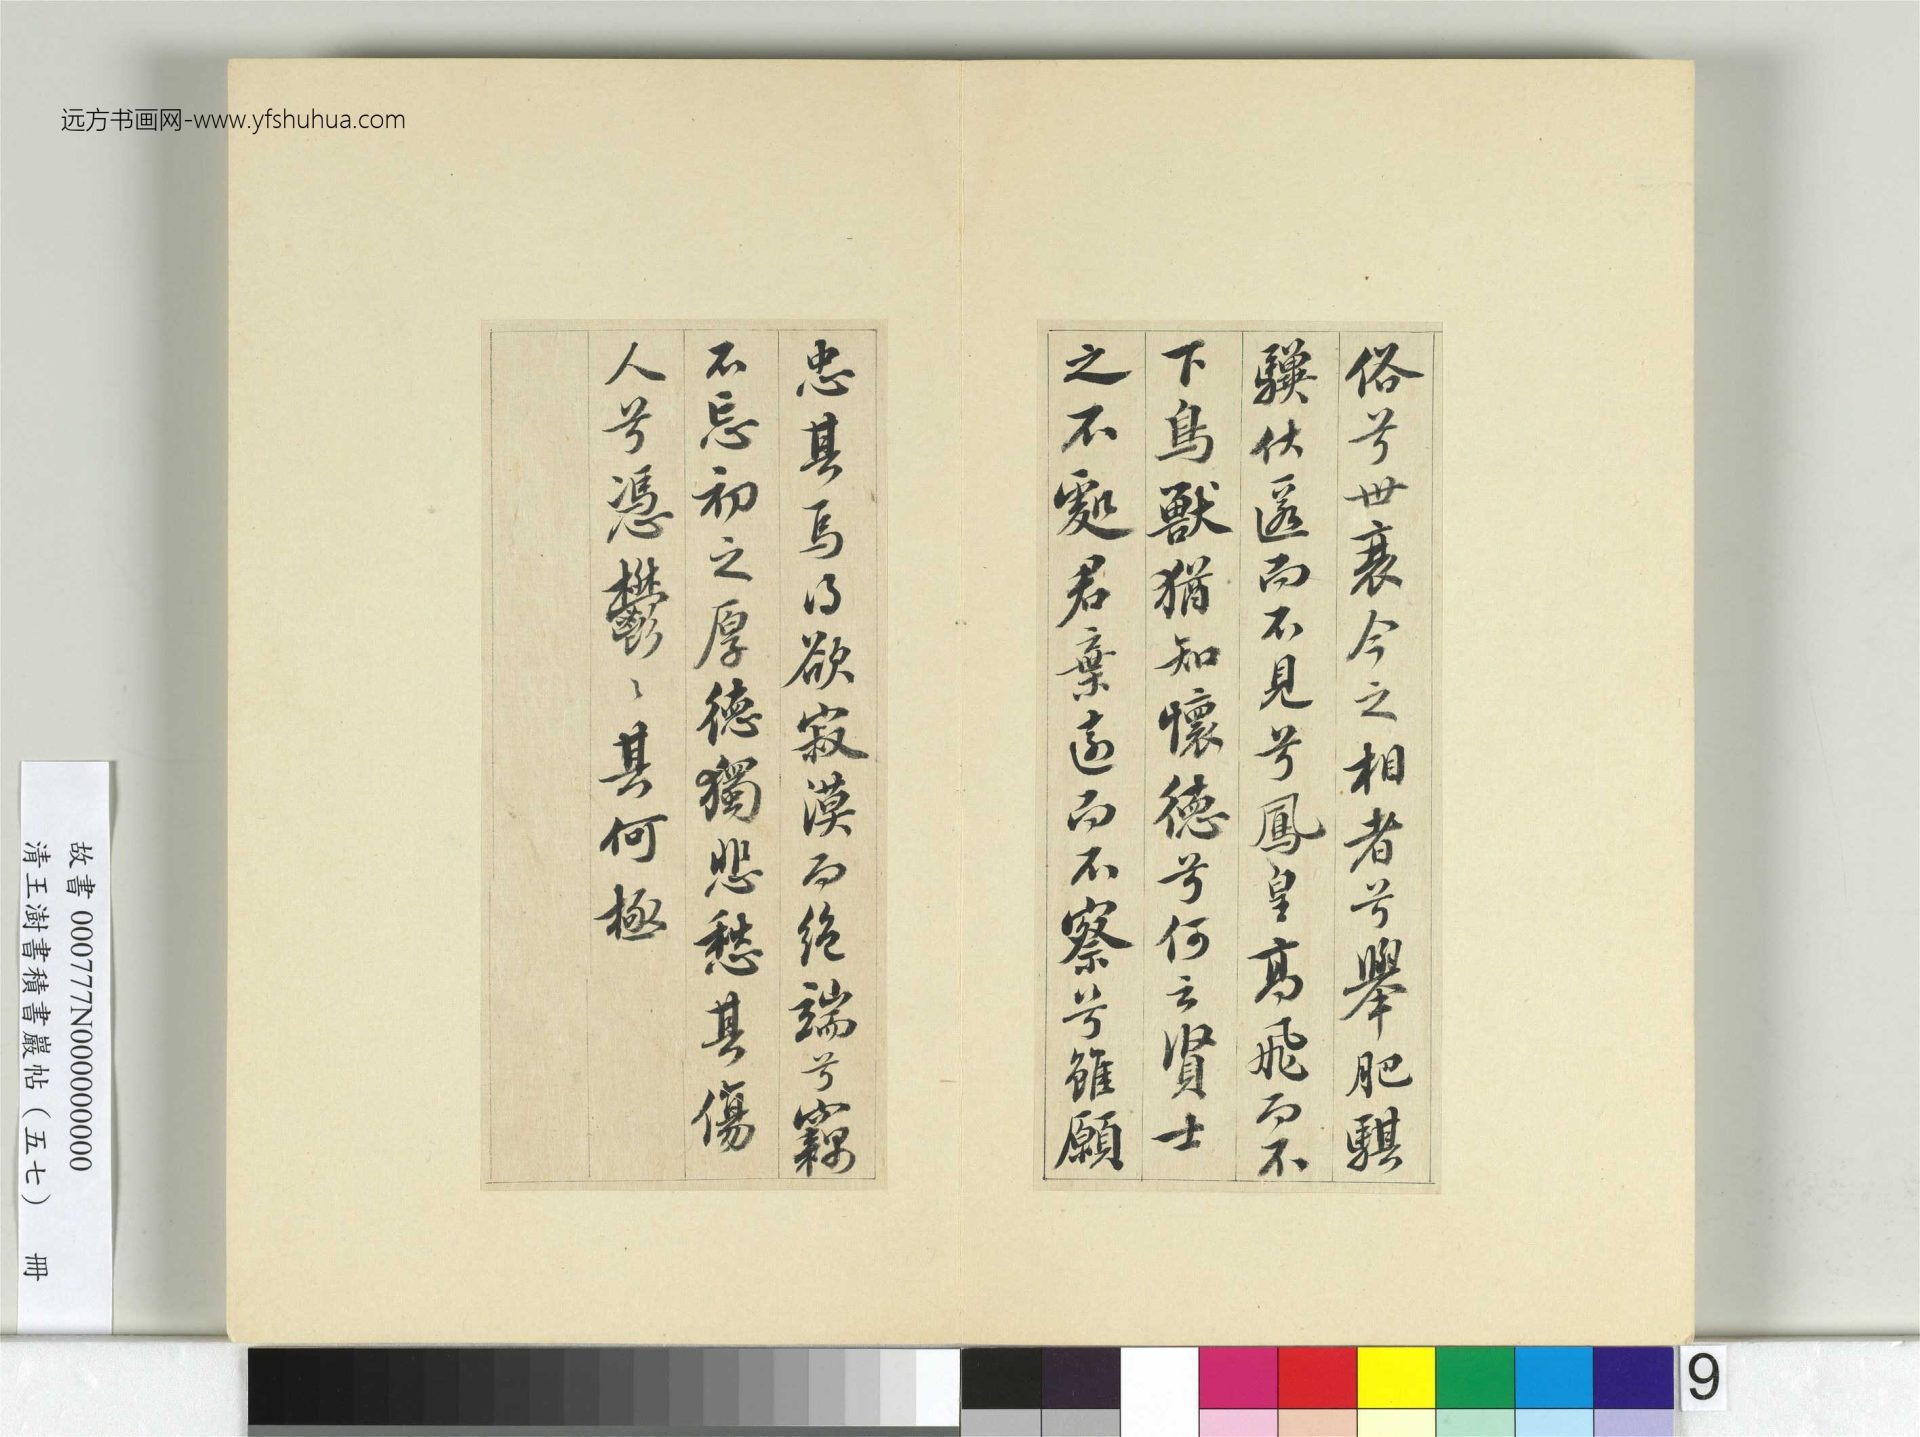 远方书画网-www.yfshuhua.com
俗兮世衰今之相者兮舉肥騏
驥伏匿而不見兮鳳皇高飛而不
下鳥獸猶知懷德兮何云賢士
之不處君棄遠而不察兮雖願
忠其焉得欲寂漠而絶端兮竊
不忘初之厚德獨悲愁其傷
人兮馮鬱〻其何極
故書 000777N000000000
清王澍書積書巖帖（五七） 冊
9